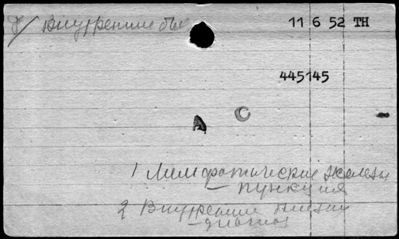 8/ Внутренние 11 6 52 TH
445145
A C
1 Лимфатические железы
пункция
2 Внутренние